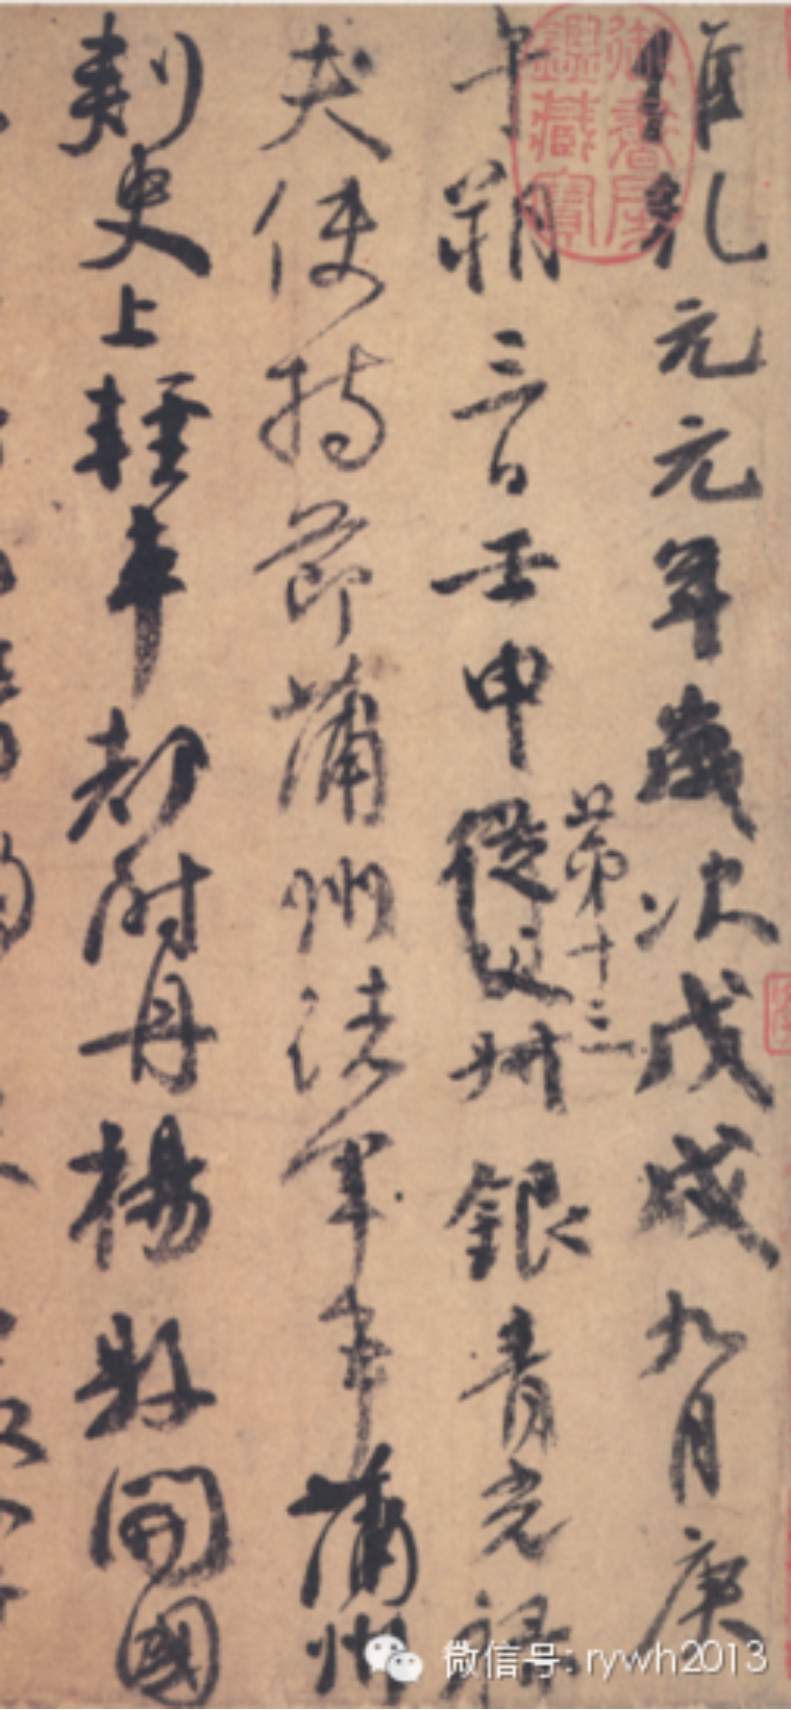 維乾元元年歲次戊戌九月庚
午朔三日壬申從父叔銀青光祿
第十三
夫使持節蒲州諸軍事蒲州
刺史上輕車都尉丹楊縣開國
御書房鑑藏寶
微信号: rywh2013